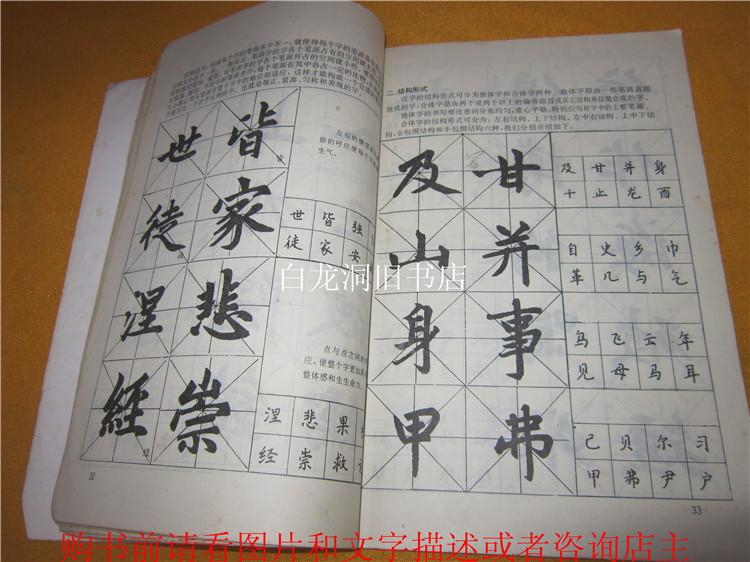 世 皆
徒 家
涅 悲
經 崇
经
生气。
世 皆 强
徒 家 安
点与点之间的
应,使整个字更加
整体感和生生命力。
涅 悲 果
经 崇 救
32
二、结构形式
汉字的结构形式可分为独体字和合体字两种。独体字即由一些笔画直接
组成的字;合体字是由两个或两个以上的偏旁部首或其它结构单位组合成的字。
独体字的书写要注意到分布均匀,重心平稳,特别应写好字中的主要笔画。
合体字的结构形式可分为:左右结构、上下结构、左中右结构、上中下结
构、全包围结构和半包围结构六种,我们分别介绍如下。
及 甘
山 并
身 事
甲 弗
及 甘 并 身
十 止 龙 酉
自 史 乡 巾
革 几 与 气
乌 飞 云 年
见 母 马 耳
己 贝 尔 习
甲 弗 尹 户
33
白龙洞旧书店
购书前请看图片和文字描述或者咨询店主